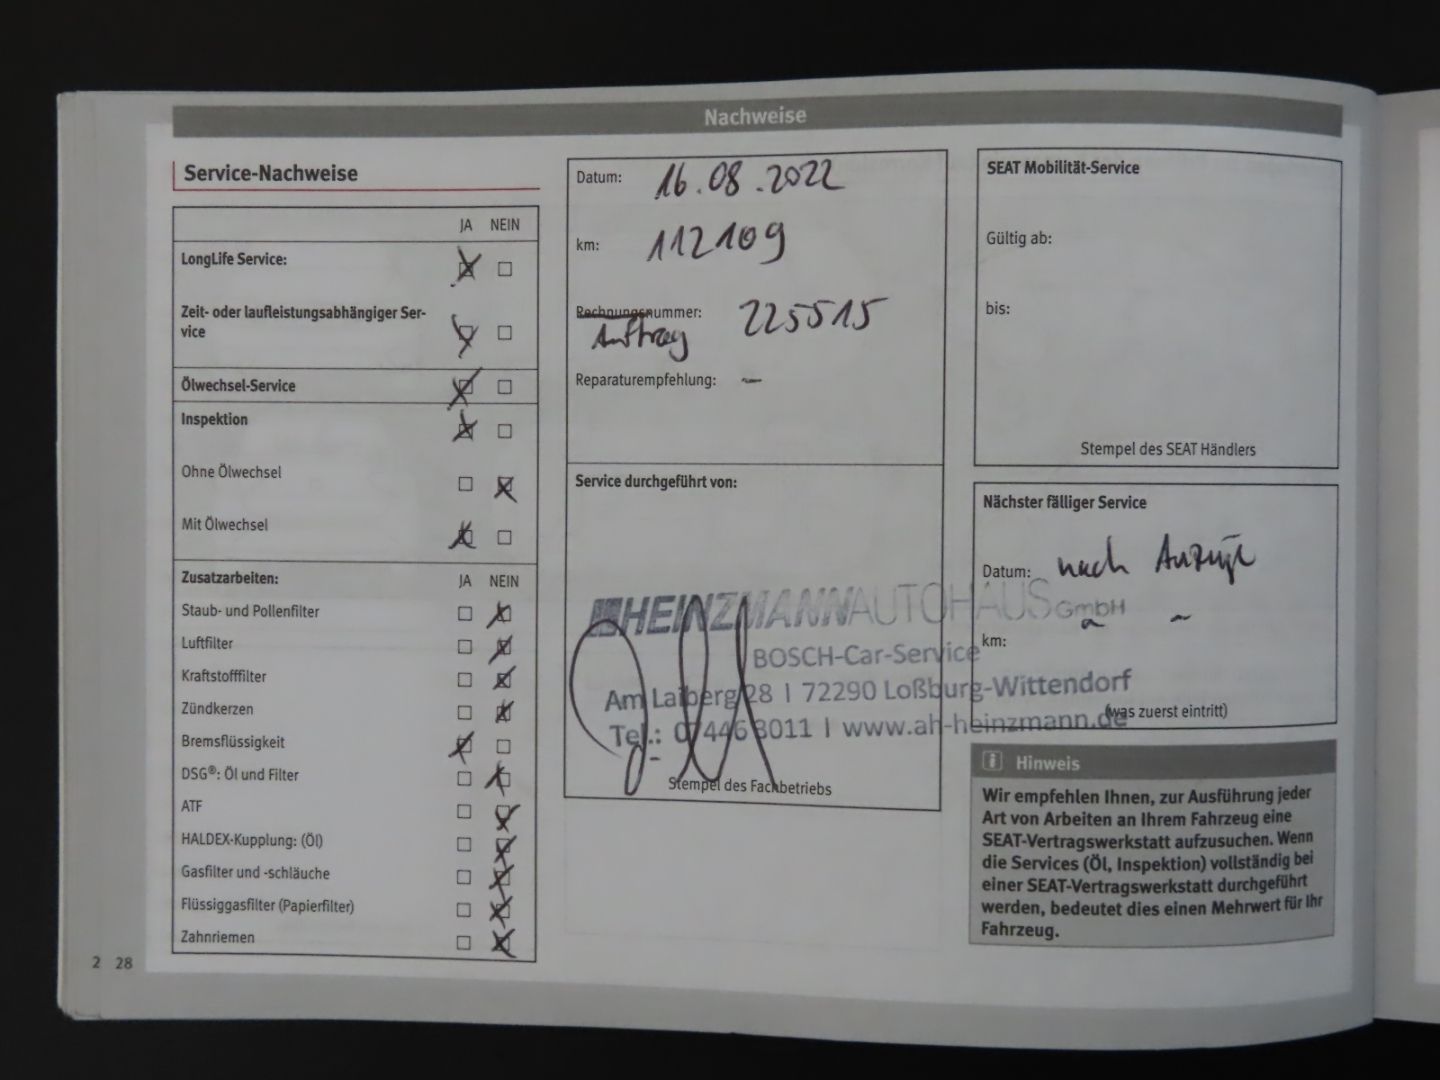 Nachweise
Service-Nachweise
JA NEIN
LongLife Service:
Zeit- oder laufleistungsabhängiger Ser-
vice
Ölwechsel-Service
Inspektion
Ohne Ölwechsel
Mit Ölwechsel
Zusatzarbeiten: JA NEIN
Staub- und Pollenfilter
Luftfilter
Kraftstofffilter
Zündkerzen
Bremsflüssigkeit
DSG®: Öl und Filter
ATF
HALDEX-Kupplung: (Öl)
Gasfilter und -schläuche
Flüssiggasfilter (Papierfilter)
Zahnriemen
2 28
Datum: 16.08.2022
km: 112109
Rechnungsnummer: 225515
Auftrag
Reparaturempfehlung: -
Service durchgeführt von:
HEINZMANN AUTOHAUS GmbH
BOSCH-Car-Service
Am Laiberg 28 I 72290 Loßburg-Wittendorf
Tel.: 07446 3011 I www.ah-heinzmann.de
Stempel des Fachbetriebs
SEAT Mobilität-Service
Gültig ab:
bis:
Stempel des SEAT Händlers
Nächster fälliger Service
Datum: nach Anzeige
km:
(was zuerst eintritt)
Hinweis
Wir empfehlen Ihnen, zur Ausführung jeder
Art von Arbeiten an Ihrem Fahrzeug eine
SEAT-Vertragswerkstatt aufzusuchen. Wenn
die Services (Öl, Inspektion) vollständig bei
einer SEAT-Vertragswerkstatt durchgeführt
werden, bedeutet dies einen Mehrwert für Ihr
Fahrzeug.